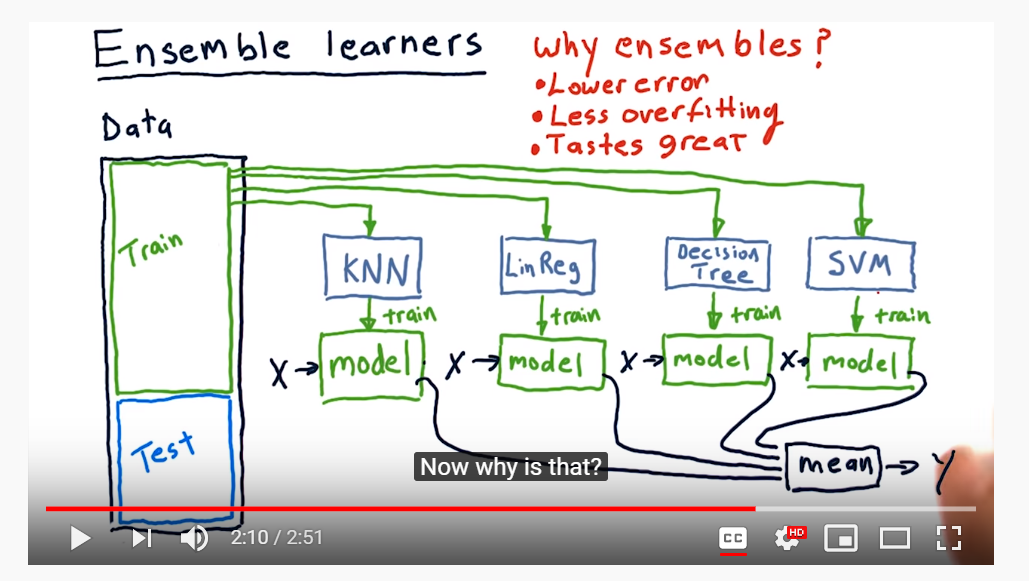 Ensemble learners
Why ensembles?
• Lower error
• Less overfitting
• Tastes great
Data
Train
KNN
LinReg
Decision Tree
SVM
train
train
train
train
X
model
X
model
X
model
X
model
Test
mean
Y
Now why is that?
2:10 / 2:51
CC
HD